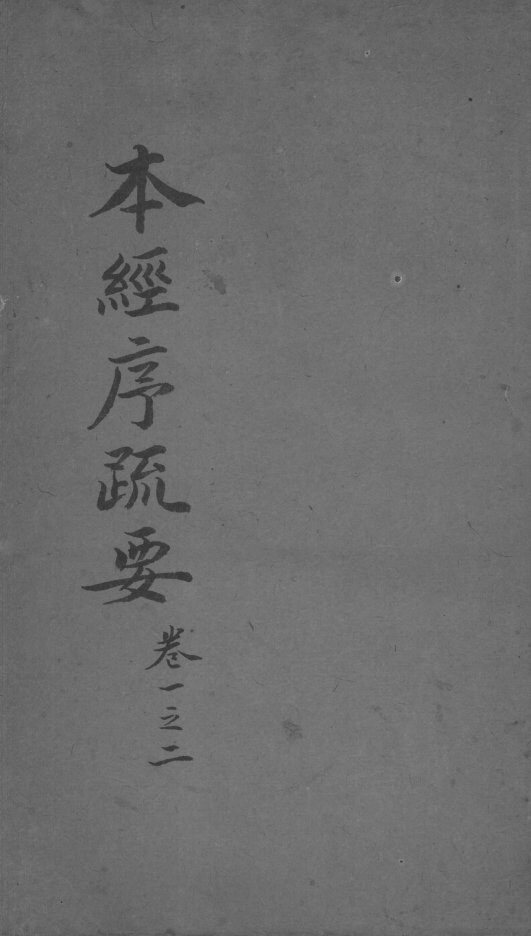 本經序疏要
卷一之二